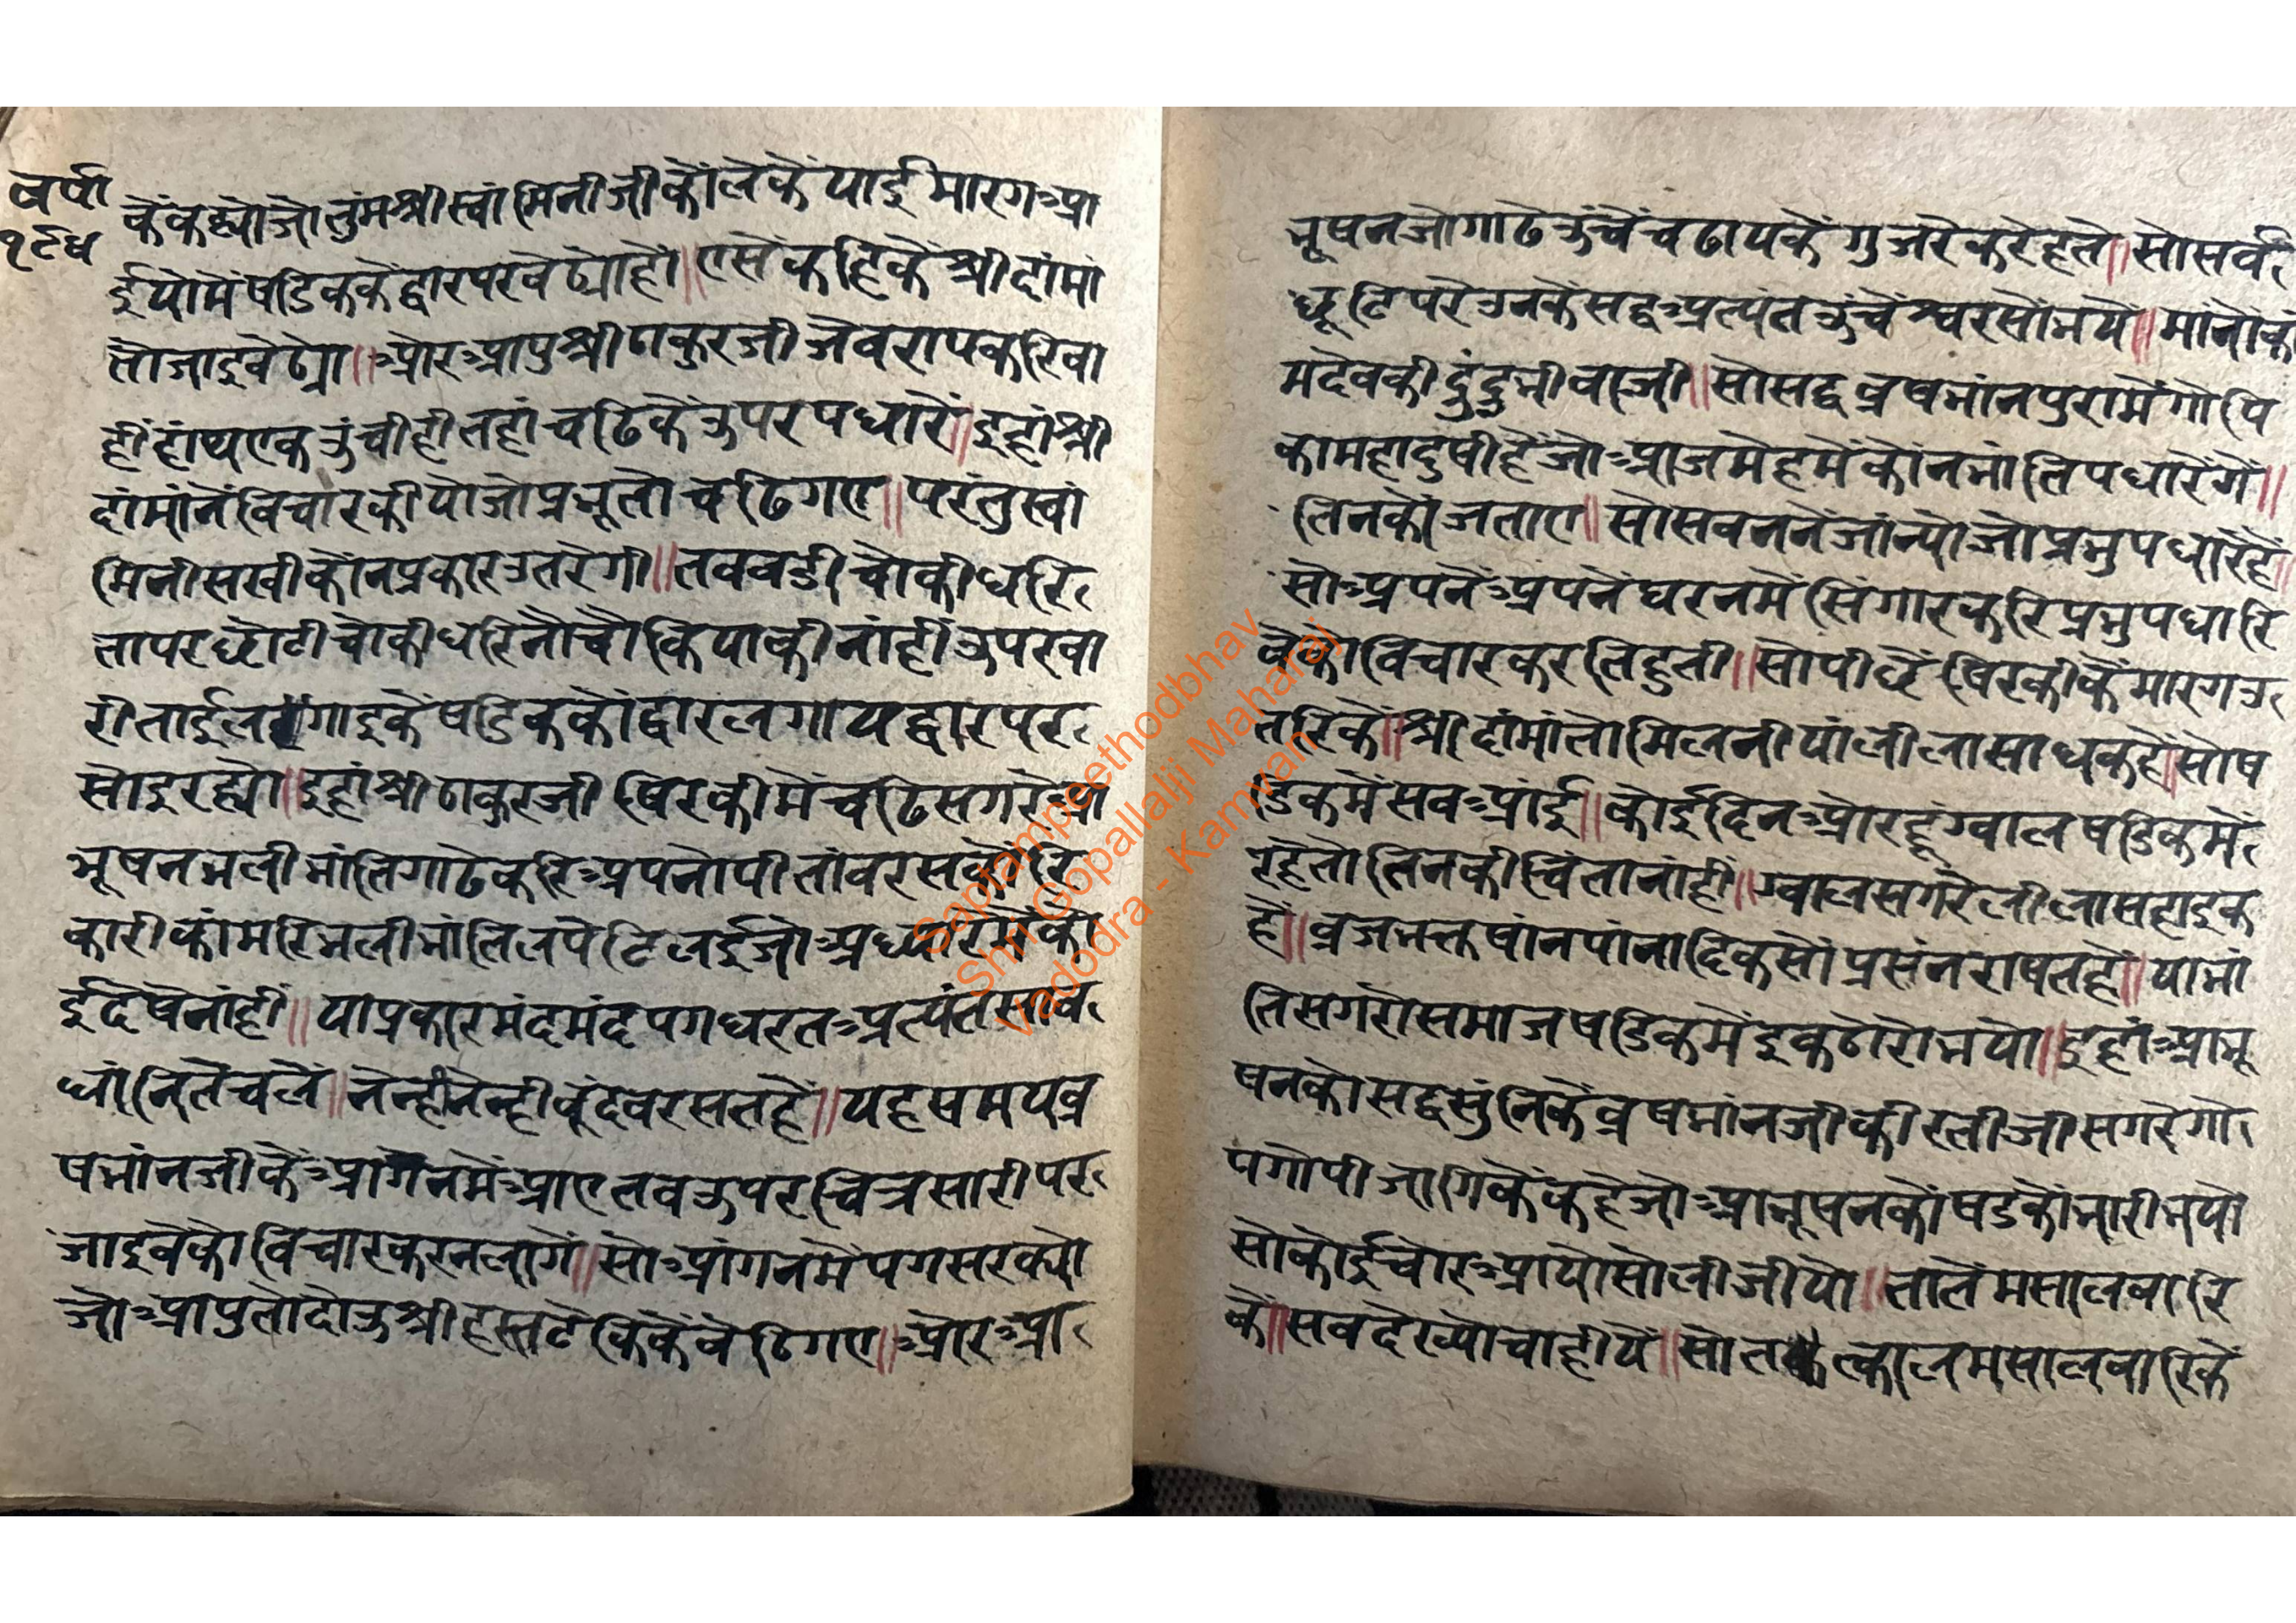 वर्षा
१९४
कैंकह्योजोतुंमश्रीस्वांमिनीजीकोंलेकेंयाईमारगआ
ईयोमेंषडिककेंद्वारपरबेठ्योहों॥एसेंकहिकेंश्रीदांमां
तोजाइबेठ्यो॥ओरआपुश्रीठाकुरजीजेवरापकरिवा
हींहांथएकउंचीहीतहांचढिकेंउपरपधारें॥इहांश्री
दांमांनेंविचारकीयोजोप्रभूतोचढिगए॥परंतुस्वां
मिनीसखीकोंनप्रकारउतरेगी॥तबबडीचोकीधरि
तापरछोटीचोकीधरिनोचोकियाकीनांहींउपरबा
रीताईलगाइकेंषडिककोंद्वारलगायद्वारपर
सोइरह्यो॥इहांश्रीठाकुरजीषिरकीमेंचढिसगरेआ
भूषनभलीभांतिगाढेकरिअपनोपीतांबरसकोरि
कारीकांमरिभलीभांतिलपेटिलईजोअध्यारेमेंको
ईदेषेनांहीं॥याप्रकारमंदमंदपगधरतअत्यंतसाव
धांनितेंचलें॥नेन्हीनेन्हीबूंदेंबरसतहें॥यहसमयव्र
षभांनजीकेंआगनमेंआएतबउपरचित्रसारीपर
जाइवेकोविचारकरनलागें॥सोआंगनमेंपगसरक्यो
जोआपुतोदोउश्रीहस्तटेकिकेंबेठिगए॥ओरआ
भूषनजोगाढेउंचेंचढायकेंगुजरेकरेहते॥सोसर्व
छूटिपरेउनकेसद्वअत्यंतउंचेश्वरसोंभये॥मांनोंका
मदेवकीदुंदुभीवाजी॥सोसद्वव्रषभांनपुरामेंगोपि
कामहादुषीहैंजोआजमेहमेंकोंनभांतिपधारेंगे॥
तिनकोंजताए॥सोसबननेंजांन्योजोप्रभुपधारेंहें॥
सोअपनेंअपनेंघरनमेंसिंगारकरिप्रभुपधारि
वेकोविचारकरतिहुती॥सोपीछेंषिरकीकेंमारगउ
तरिकें॥श्रीदांमांतोमिलनीयांलीलासाधकहें॥सोष
डिकमेंसबआंई॥कोईदिनओरहूंग्वालषडिकमें
रहेतोतिनकीचिंतानांहीं॥ग्वालसगरेलीलासहाइक
हें॥व्रजभक्तषांनपांनादिकसोंप्रसंनराषतहें॥याभां
तिसगरोसमाजषडिकमेंइकठोरोभयो॥इहांआभू
षनकोसद्वसुंनिकेंव्रषभांनजीकीरतीजीसगरेगो
पगोपीजागिकेंकहेंजोआभूषनकोंषडकोंभारीभयो
सोकोईचोरआयोसोलीजीयो॥तातेंमसालबारि
कें॥सबदेख्योचाहीयें॥सोतत्कालमसालबारिकें